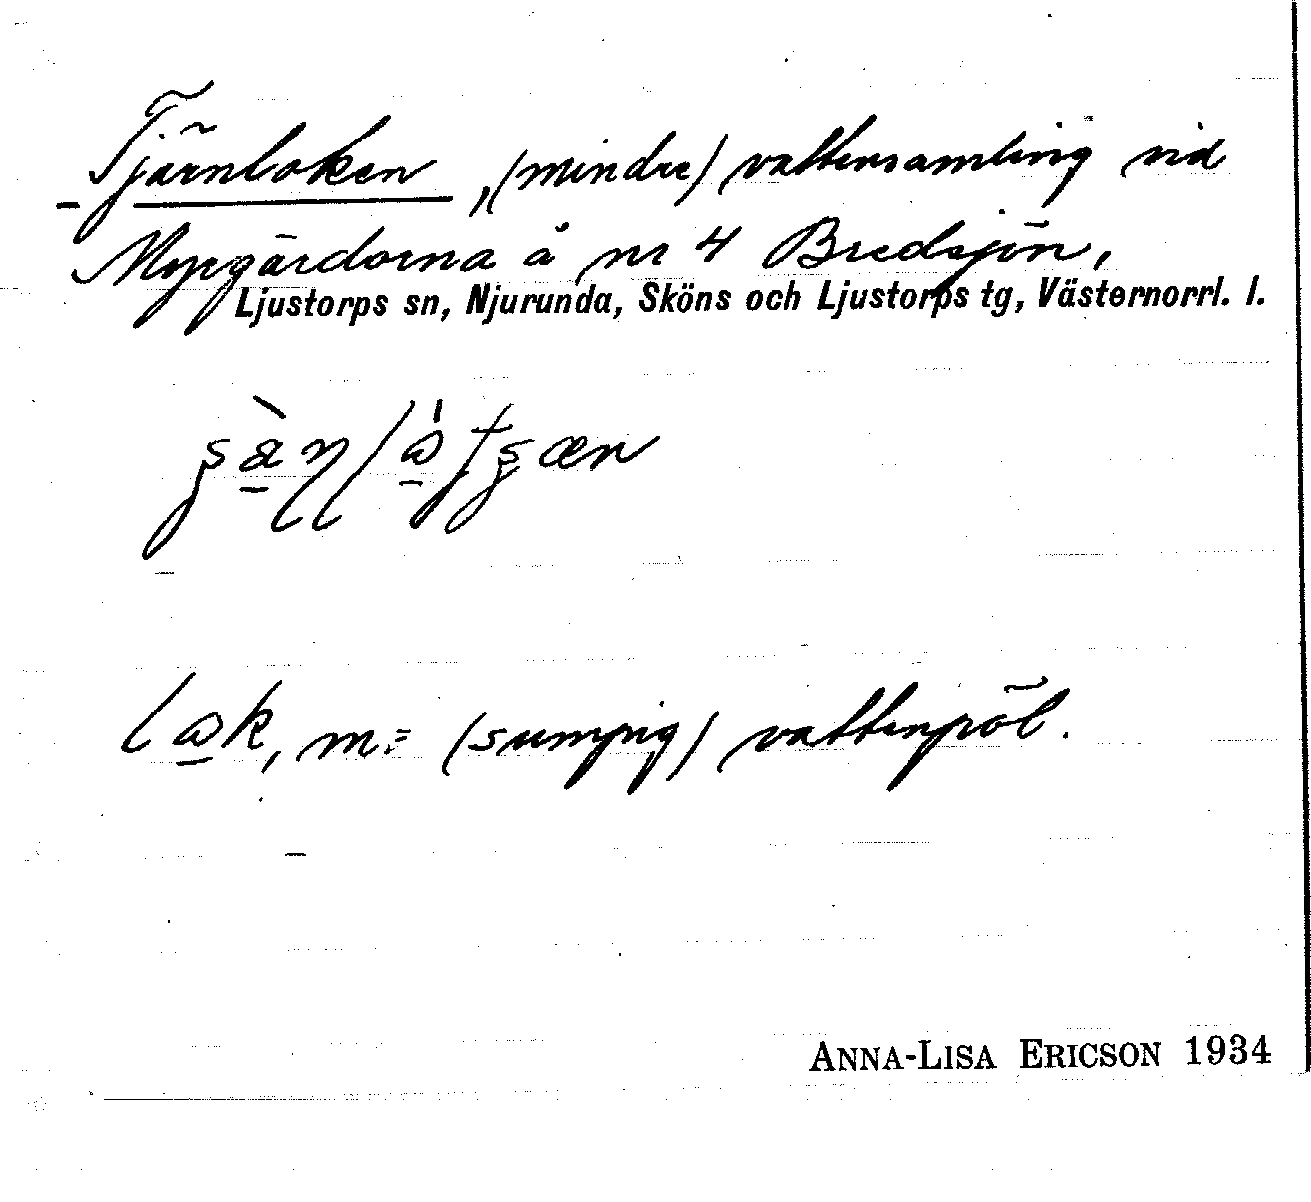 Tjärnloken, (mindre) vattensamling vid
Myrgärdorna å nr 4 Bredsjön,
Ljustorps sn, Njurunda, Sköns och Ljustorps tg, Västernorrl. l.
lok, m. = (sumpig) vattenpöl.
ANNA-LISA ERICSON 1934